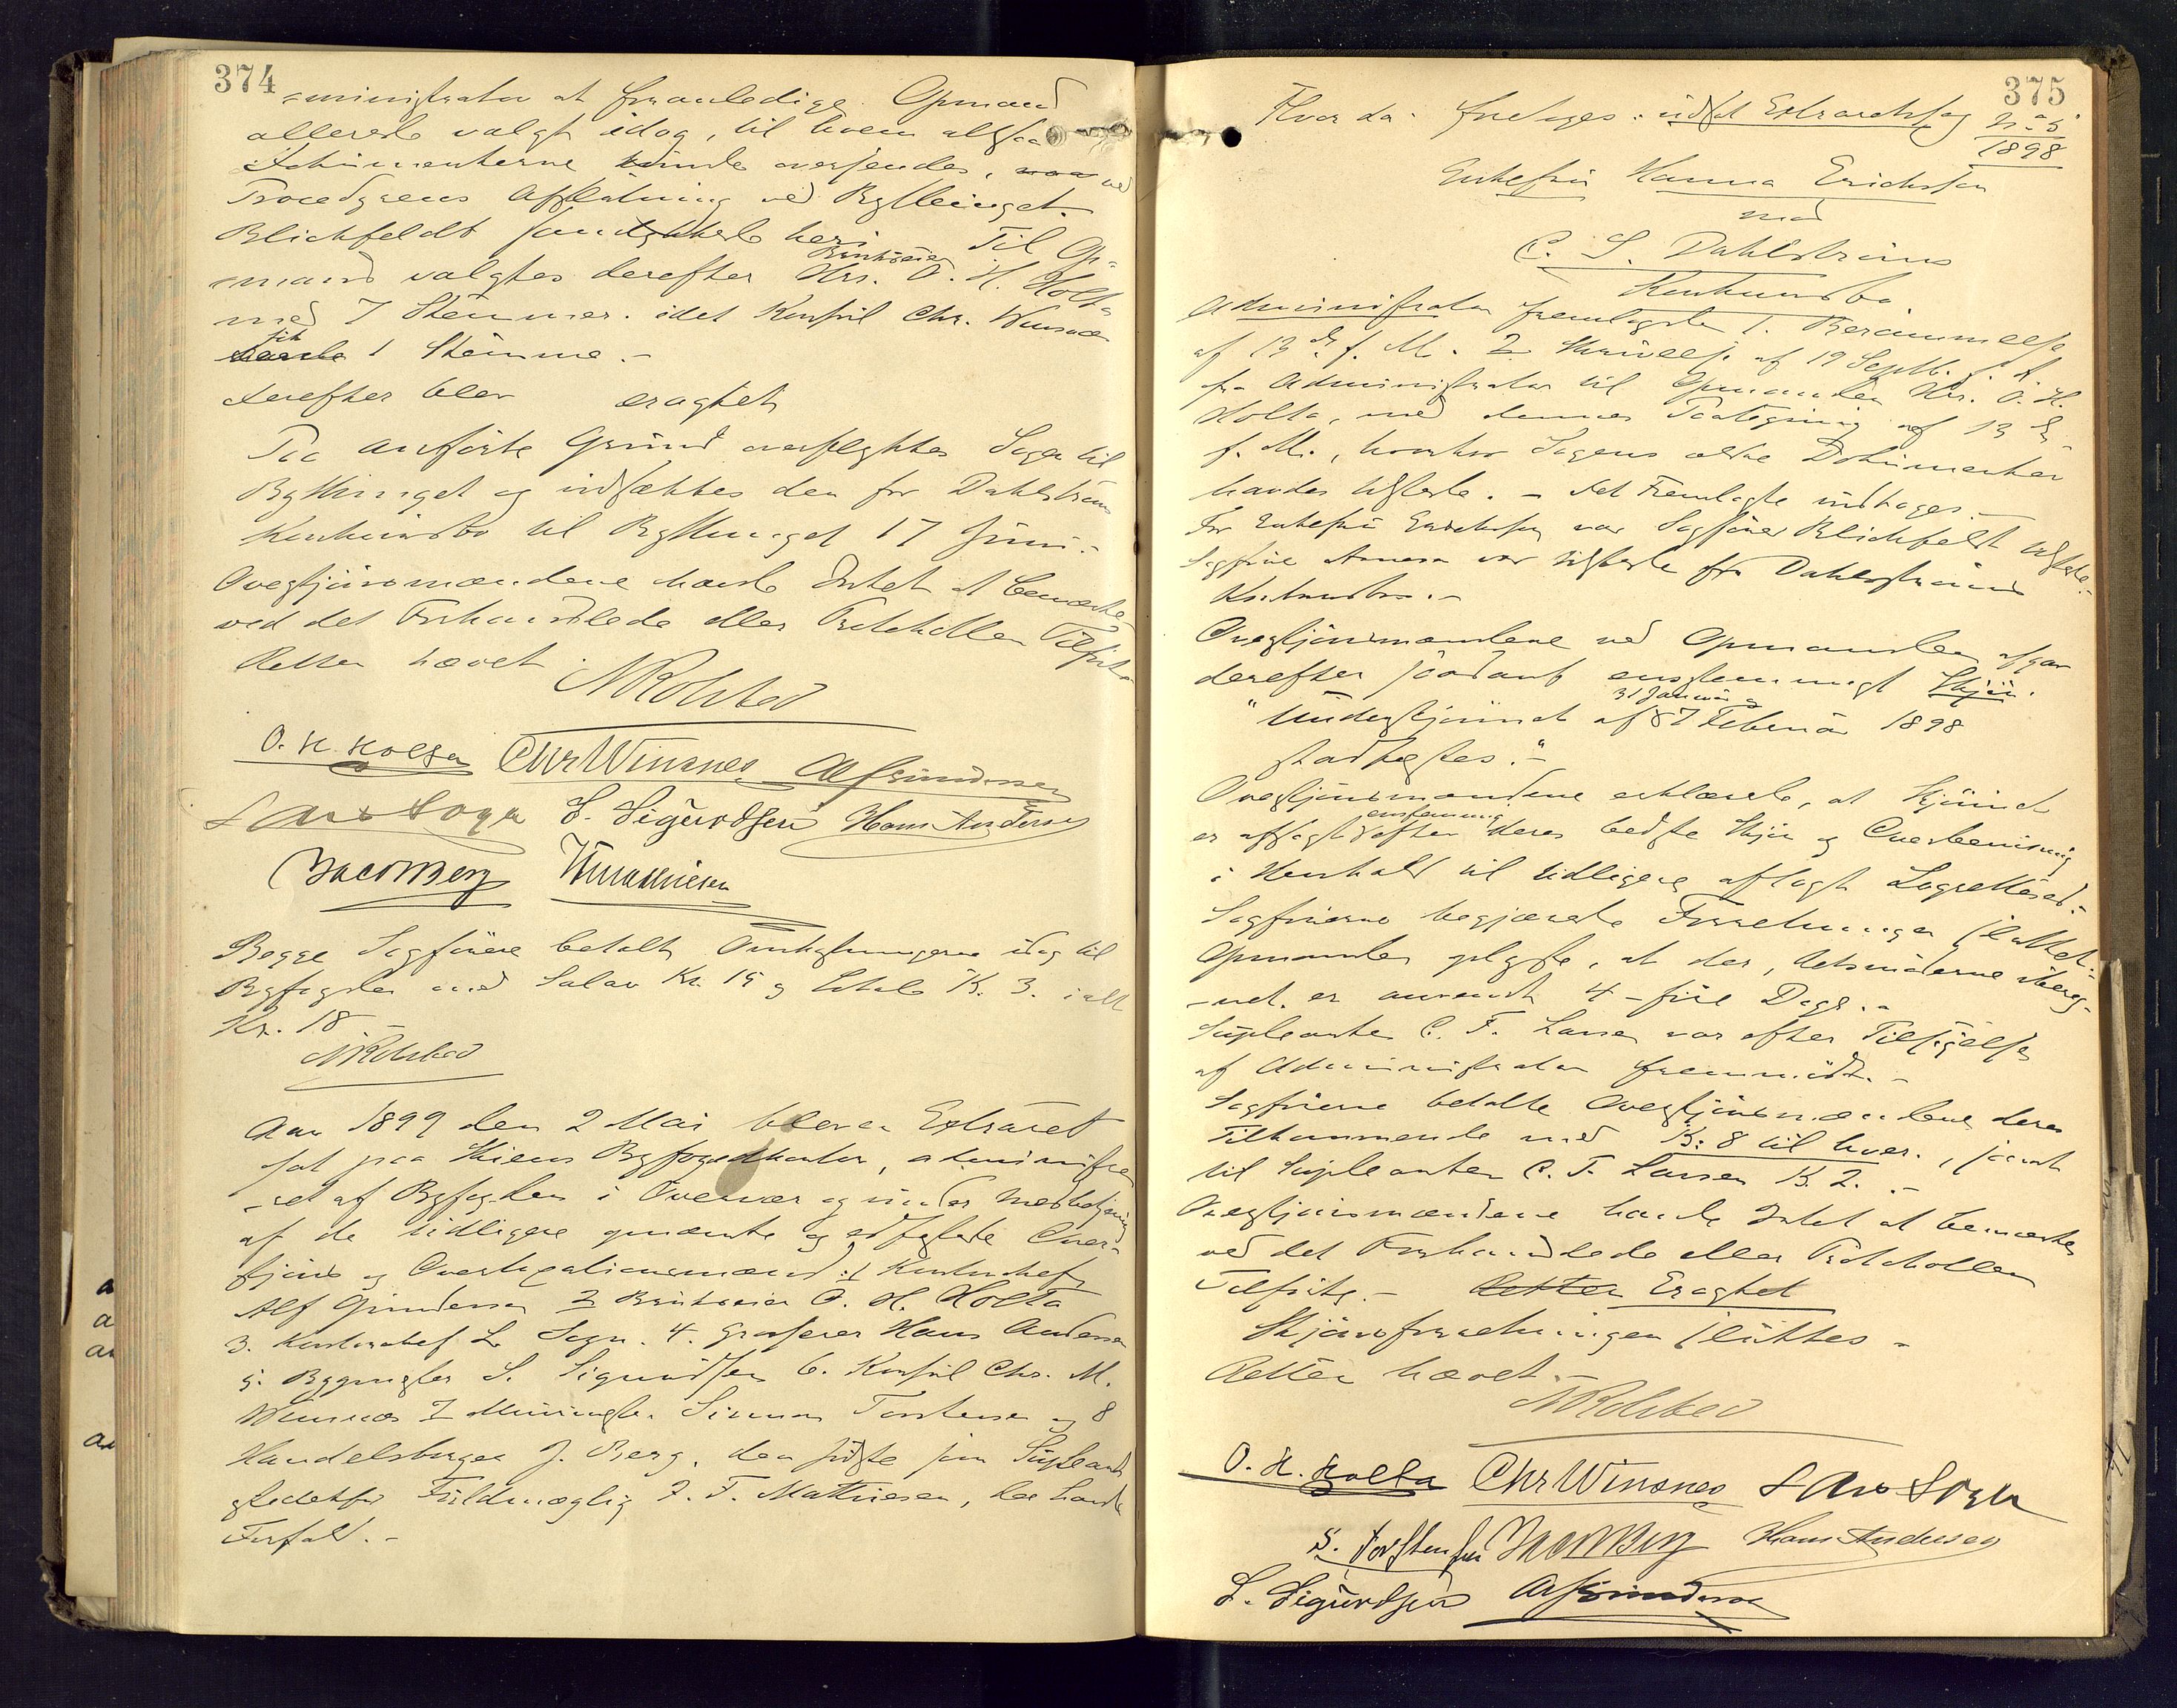 374
-ministrator at foranledige Opmand
allerede valgt idag, til hvem altsaa
Dokumenterne kunde oversendes, ved
Procedyrens Afslutning ved Bythinget.
Blichfeldt samtykkede heri. Til Op-
mand valgtes derefter Brukseier Hrr. O. H. Holta
med 7 Stemmer. idet Konsul Chr. Winsnes
fik 1 Stemme.-
derefter blev eragtet
Paa anførte Grund udsættes Sagen til
Bythinget og indsættes den for Dahlstrøms
Konkursbo til Bythinget 17 Juni.-
Overskjønsmændene havde Intet at bemærke
ved det Forhandlede eller Protokollen Tilførte
Retten hævet
N Rolsted
O. H. Holta Chr Winsnes Alf Gundersen
Lars Sogn S. Sigurdsen Hans Andersen
Jacob Berg Mathiesen
Begge Sagførere betalte Omkostningerne idag til
Byfogden med Salær Kr. 15 og K. 3. ialt
Kr. 18.-
N Rolsted
Aar 1899 den 2 Mai blev en Extraret
sat paa Skiens Byfogedkontor, administre-
-ret af Byfogden i Overvær og under Medbetjening
af de tidligere opnævnte og edfæstede Over-
skjøns og Overtaxationsmænd: 1 Kontorchef
Alf Gundersen 2 Brukseier O. H. Holta
3. Kontorchef L. Sogn. 4. Grosserer Hans Andersen
5. Bygmester S. Sigurdsen 6. Konsul Chr. M.
Winsnes 7 Murmester Simon Torstensen og 8
Handelsborger J. Berg, den sidste som Supleant
istedetfor Fuldmægtig F. Mathiesen, der havde
Forfald.-
375
Hvor da foretoges: udsat Extraretssag No 5
1898
Enkefru Hanna Erichsen
mod
C. S. Dahlstrøms
Konkursbo
Administrator fremlagde 1. Berammelse
af 13 de f. M. 2 Skrivelse af 19 Septb. f. A.
fra Administrator til Opmanden Hrr. O. H.
Holta, med dennes Paategning af 13 de
f. M., hvorhos Sagens øvrige Dokumenter
havdes tilstede. - det Fremlagte indtages.-
For Enkefru Erichsen var Sagfører Blichfeldt tilstede.-
Sagfører var tilstede for Dahlstrøms
Konkursbo.-
Overskjønsmændene med Opmanden afgav
derefter saadant enstemmigt Skjøn.
"Underskjønnet af 31 Januar og 7 Februar 1898
stadfæstes."-
Overskjønsmændene erklærede, at Skjønnet
er afsagt enstemmig efter deres bedste Skjøn og Overbevisning
i Henhold til tidligere aflagt Lagrettesed.-
Sagførerne begjærede Forretningen sluttet.-
Opmanden oplyste, at der, Retsmøderne ibereg-
-net, er anvendt 4 - fire Dage.-
Supleanten C. F. Larsen var efter Tilsigelse
af Administrator fremmødt.-
Sagførerne betalte Overskjønsmændene deres
Tilkommende med K: 8 til hver., samt
til Supleanten C. F. Larsen K 2.-
Overskjønsmændene havde Intet at bemærke
ved det Forhandlede eller Protokollen
Tilførte.- Retten Eragtet
Skjønsforretningen sluttes -
Retten hævet.-
N Rolsted
O. H. Holta Chr Winsnes Lars Sogn
S. Torstensen Jacob Berg Hans Andersen
S. Sigurdsen Alf Gundersen